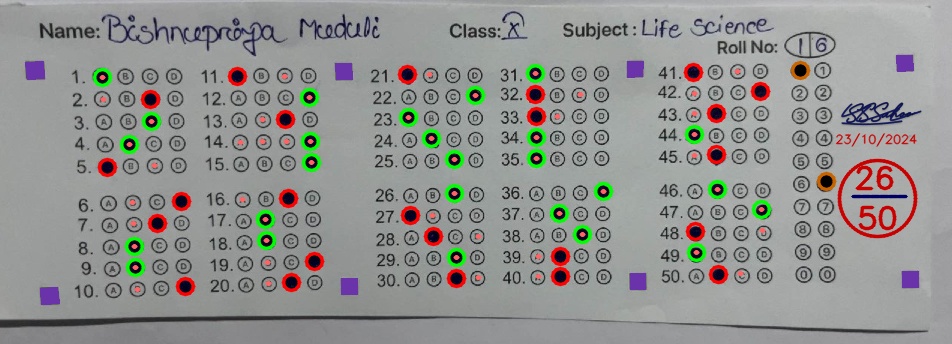 Name: Bishnupriya Muduli Class: X Subject: Life Science
Roll No: 16
1. B C D
2. A B D
3. A B D
4. A C D
5. B C D
6. A B C
7. A B D
8. A C D
9. A C D
10. A B C
11. B C D
12. A B C
13. A B D
14. A B C
15. A B C
16. A B D
17. A C D
18. A C D
19. A B C
20. A B D
21. B C D
22. A B C
23. B C D
24. A C D
25. A B D
26. A B D
27. B C D
28. A C D
29. A B D
30. A B
31. B C D
32. B C D
33. B C D
34. B C D
35. B C D
36. A B C
37. A C D
38. A B D
39. A C D
40. A C D
41. B C D
42. A B C
43. A C D
44. B C D
45. A C D
46. A C D
47. A B C
48. B C D
49. B C D
50. A C D
1
2 2
3 3
4 4
5 5
6
7 7
8 8
9 9
0 0
23/10/2024
26
50